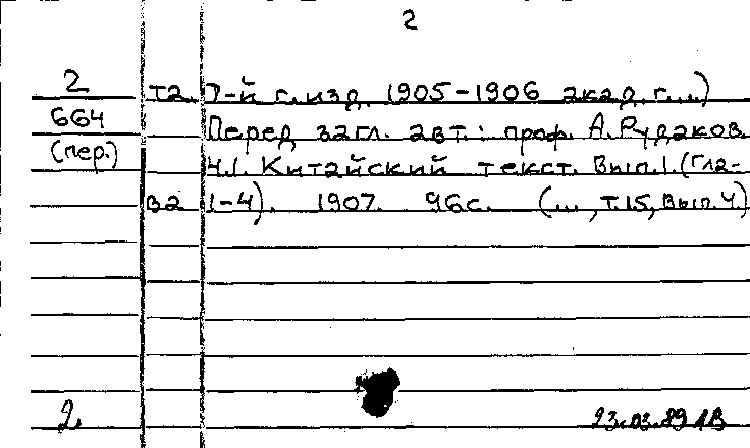 2
2 т2. 7-й г. изд. 1905-1906 акад. г. ...)
664 Перед загл. авт.: проф. А. Рудаков.
(пер.) Ч.1. Китайский текст. Вып.1. (Гла-
в2 1-4). 1907. 96с. (..., т.15, вып.4)
2. 23.03.89 ЛВ